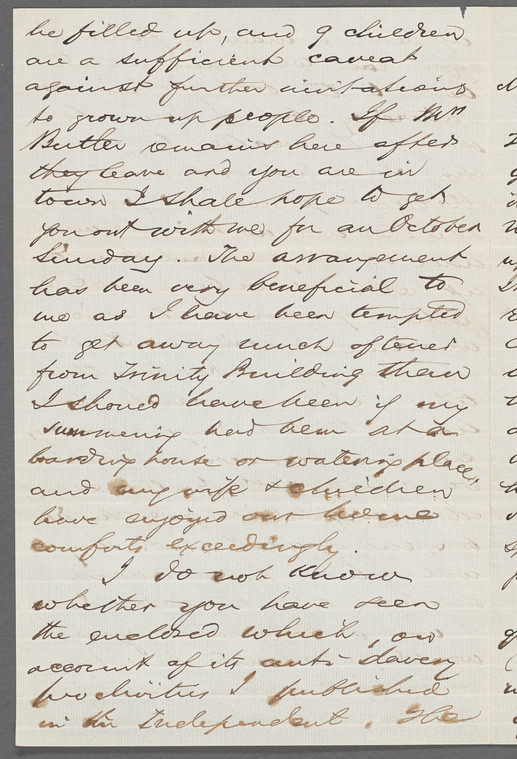 be filled up, and 9 children
are a sufficient caveat
against further invitations
to grown up people. If Mrs
Butler remains here after
they leave and you are in
town I shall hope to get
you out with me for an October
Sunday. The arrangement
has been very beneficial to
me as I have been tempted
to get away much oftener
from Trinity Building than
I should have been if my
summering had been at a
boarding house or watering place,
and my wife & children
have enjoyed our home
comforts exceedingly.
I do not know
whether you have seen
the enclosed which, on
account of its anti-slavery
proclivities I published
in the Independent. The